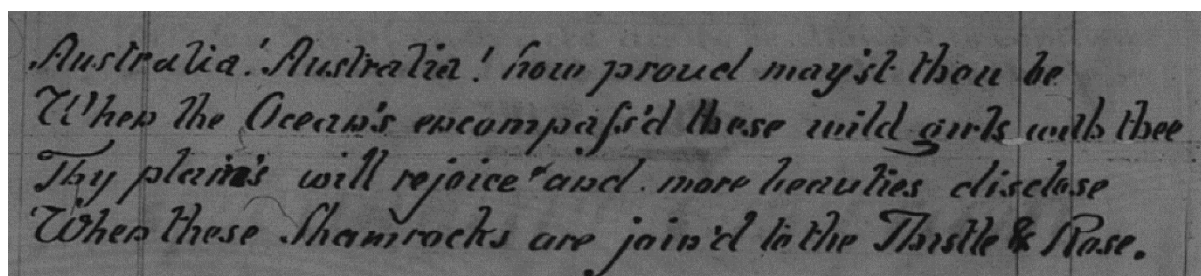 Australia! Australia! how proud may'st thou be
When the Ocean's encompass'd these wild girls with thee
Thy plain's will rejoice and more beauties disclose
When these Shamrocks are join'd to the Thistle & Rose.